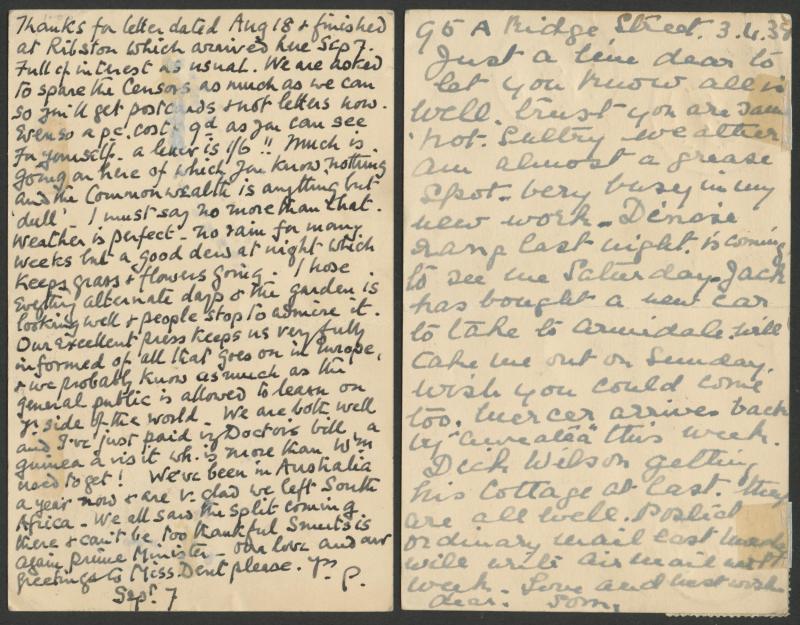 Thanks for letter dated Aug 18 & finished
at Ribston which arrived here Sep 7.
Full of interest as usual. We are asked
to spare the Censors as much as we can
so you'll get postcards & not letters now.
Even so a p.c. costs 9d as you can see
for yourself. a letter is 1/6 !! Much is
going on here of which you know nothing
and the Commonwealth is anything but
'dull' - I must say no more than that.
Weather is perfect - no rain for many
weeks but a good dew at night which
keeps grass & flowers going. I hose
every alternate days & the garden is
looking well & people stop to admire it.
Our Excellent press keeps us very fully
informed of all that goes on in Europe,
& we probably know as much as the
general public is allowed to learn on
yr side of the world - We are both well
and I've just paid my Doctors bill a
guinea a visit wh. is more than
used to get! We've been in Australia
a year now & are v. glad we left South
Africa - We all saw the split coming
there & can't be too thankful Smuts is
again prime Minister - our love and our
greetings to Miss Dent please. Yrs P.
Sept. 7
95 A Ridge Street. 3.4.39
Just a line dear to
let you know all is
well. trust you are same
hot. Sultry weather
am almost a grease
spot. very busy in my
new work - Denise
rang last night. is coming
to see me Saturday. Jack
has bought a new car
to take to Armidale. will
take me out on Sunday.
wish you could come
too. Mercer arrives back
by this week.
Dick Wilson getting
his cottage at last. they
are all well. Posted
ordinary mail last
will write air mail next
week. Love and best wishes
dear.